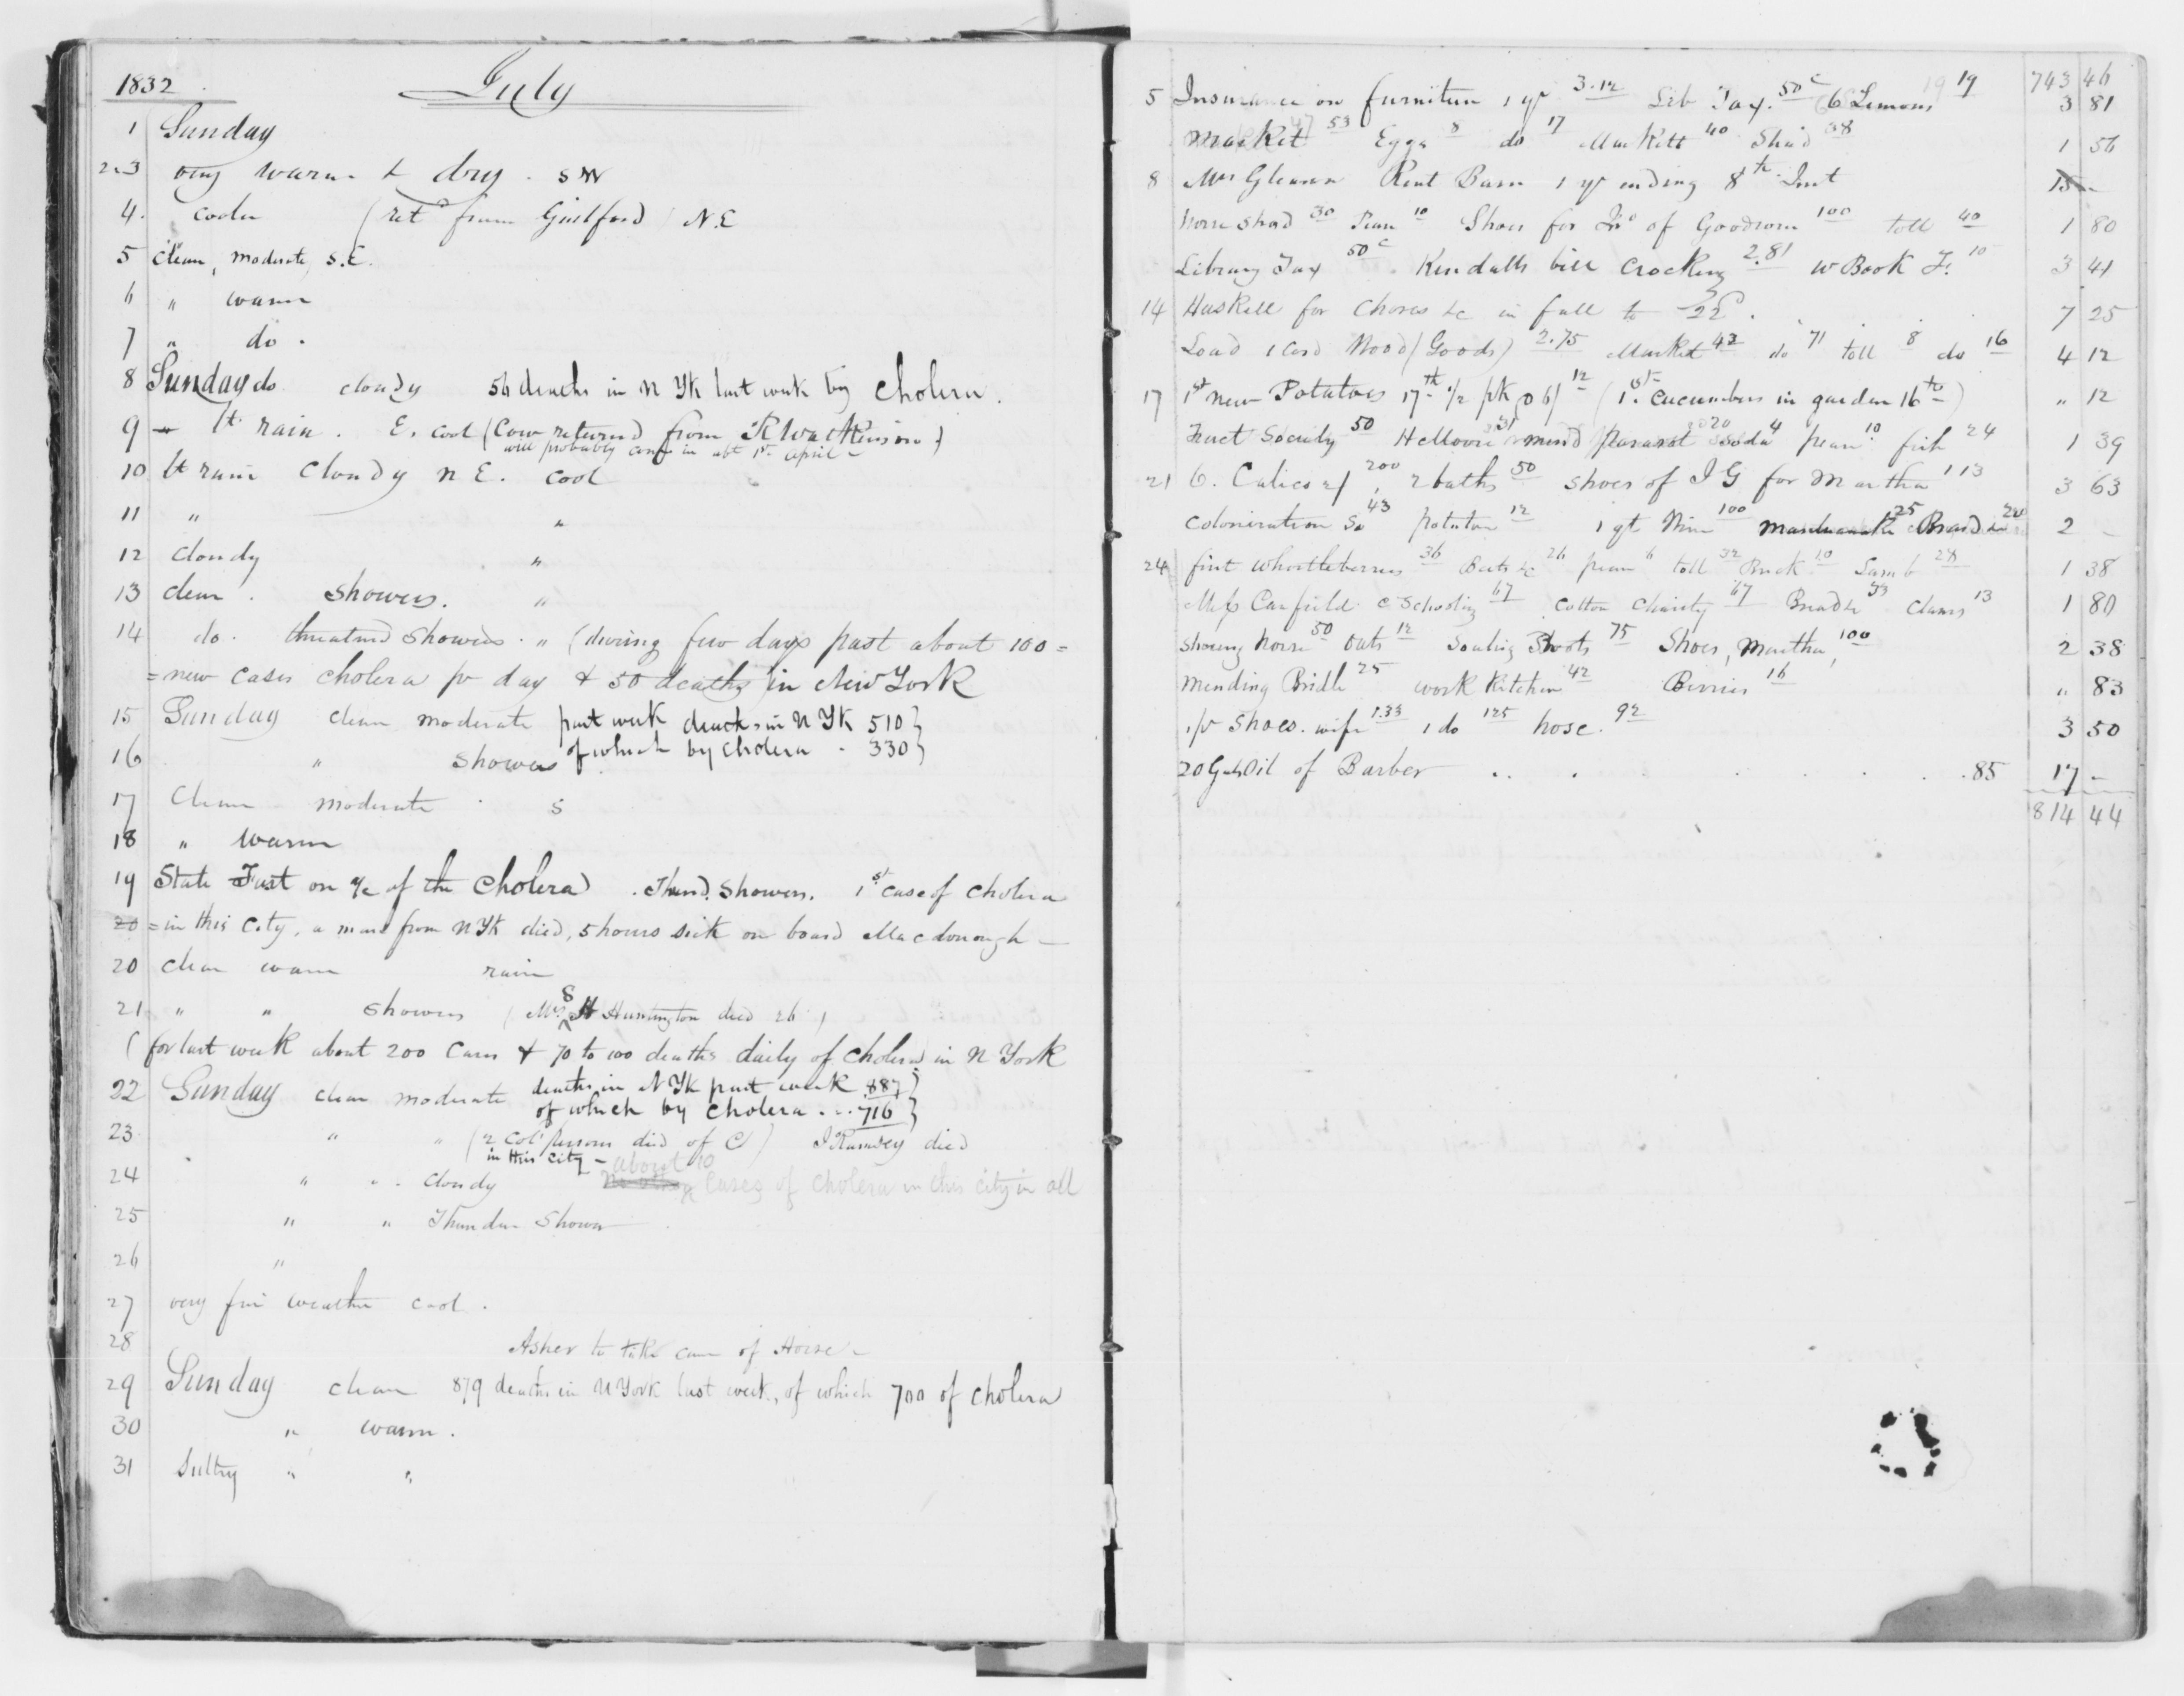 1832 July
1 Sunday
2.3 very warm & dry . SW
4. cooler (retd from Guilford) N.E
5 Clear, moderate, S.E.
6 " warm
7 " do .
8 Sunday do cloudy 56 deaths in N Yk last week by Cholera.
9 lt rain . E. cool (Cow returned from R Watkinson)
will probably come in abt 1st April
10 lt rain Cloudy N E. cool
11 " "
12 Cloudy "
13 clear . Showers. "
14 do . threatned Showers . " (during few days past about 100 =
= new cases cholera pr day & 50 deaths in New York
15 Sunday clear moderate past week deaths in N Yk 510
of which by cholera - 330
16 " Showers
17 Clear moderate . S
18 " Warm
19 State Fast on a/c of the Cholera . Thund. Showers. 1st case of Cholera
20 = in this City, a man from N Yk died, 5 hours sick on board Macdonough
20 clear warm rain
21 " " Showers (Mrs S H Huntington died 26)
(for last week about 200 Cases & 70 to 100 deaths daily of Cholera in N York
22 Sunday clear moderate deaths in N Yk past week 887
of which by Cholera ... 716
23 " " (2 Cold persons died of C) I Ramsey died
in this City -
about 10
24 " " . Cloudy No other Cases of Cholera in this city in all
25 " " Thunder Shower
26 "
27 very fine weather cool .
28 Asher to take care of Horse
29 Sunday clear 879 deaths in N York last week, of which 700 of Cholera
30 " warm .
31 Sultry " "
743 46
5 Insurance on furniture 1 yr 3.12 Lib Tax. 50c 6 Lemons 19 3 81
Market 53 Eggs 8 do 17 Markett 40 Shad 38 1 56
8 Mrs Gleason Rent Barn 1 yr ending 8th Inst 15 -
Horse Shod 30 10 Shoes for of Goodwin 100 toll 40 1 80
Library Tax 50c . Kendalls bill Crockery 2.81 W Book 10 3 41
14 Haskell for Chores &c in full to 7 25
Load 1 Cord Wood (Goods) 2.75 Market 42 do 71 toll 8 do 16 4 12
17 1st new Potatoes 17th 1/2 pk 12 (1st Cucumbers in garden 16th) " 12
Tract Society 50 31 mend parasol 20 soda 4 10 fish 24 1 39
21 6. Calico 2/ 200 2 baths 50 shoes of I G for Martha 113 3 63
Colonization So 43 potatoes 12 1 qt Wine 100 25 Bread &c 20 2 -
24 first Whortleberries 36 Beets &c 26 6 toll 32 10 Lamb 28 1 38
Miss Canfield Schooling 67 Cotton Charity 67 Bread &c 33 Clams 13 1 80
Shoeing horse 50 Oats 12 Soaling Boots 75 Shoes, Martha, 100 2 38
Mending Bridle 25 work Kitchen 42 Berries 16 " 83
1 pr Shoes . wife 1.33 1 do 125 hose . 92 3 50
20 Gals Oil of Barber .. . . . . . .85 17 -
814 44